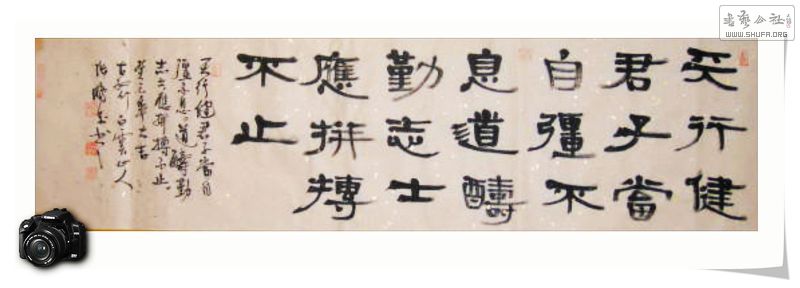 書藝公社
WWW.SHUFA.ORG
天行健
君子當
自彊不
息道醻
勤志士
應拼搏
不止
天行健君子當自
彊不息道醻勤
志士應拼搏不止
年大吉
白雲山人